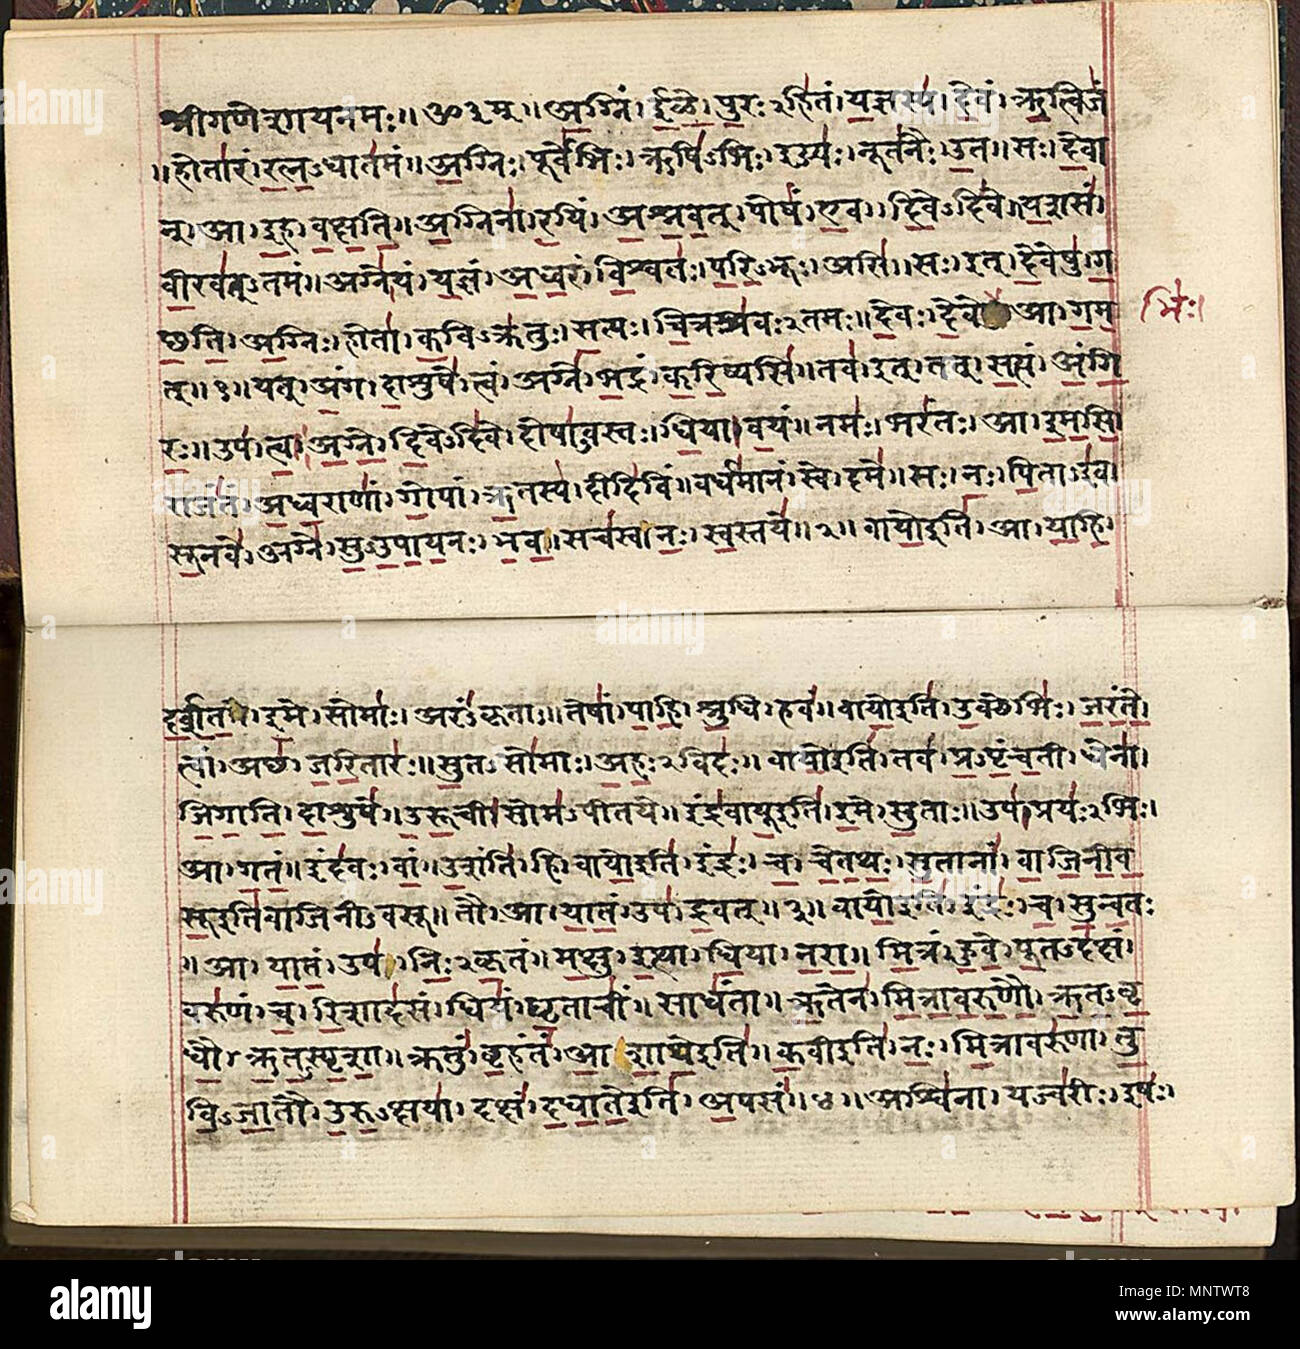 श्रीगणेशायनमः॥ॐ३म्॥अग्निं।ईळे।पुरःऽहितं।यज्ञस्य।देवं।ऋत्विजं
॥होतारं।रत्नऽधातमं॥अग्निः।पूर्वेभिः।ऋषिऽभिः।ईड्यः।नूतनैः।उत॥सः।देवा
न्।आ।इह।वक्षति॥अग्निना।रयिं।अश्नवत्।पोषं।एव।दिवेऽदिवे।यशसं।
वीरवत्ऽतमं॥अग्ने।यं।यज्ञं।अध्वरं।विश्वतः।परिऽभूः।असि॥सः।इत्।देवेषु।ग
छति॥अग्निः।होता।कविऽक्रतुः।सत्यः।चित्रश्रवःऽतमः॥देवः।देवे आ।गम
भिः।
त्॥१॥यत्।अंग।दाशुषे।त्वं।अग्ने।भद्रं।करिष्यसि॥तव।इत्।तत्।सत्यं।अंगि
रः॥उप।त्वा।अग्ने।दिवेऽदिवे।दोषाऽवस्तः।धिया।वयं॥नमः।भरंतः।आ।इमसि।
राजंतं।अध्वराणां।गोपां।ऋतस्य।दीदिविं॥वर्धमानं।स्वे।दमे॥सः।नः।पिताऽइव
सूनवे।अग्ने।सुऽउपायनः।भव॥सचस्व।नः।स्वस्तये॥२॥वायोइति।आ।याहि।
दर्शत।इमे।सोमाः।अरंऽकृताः॥तेषां।पाहि।श्रुधि।हवं॥वायोइति।उक्थेभिः।जरंते।
त्वां।अछ।जरितारः॥सुतऽसोमाः।अहःऽविदः॥वायोइति।तव।प्रऽपृंचती।धेना।
जिगाति।दाशुषे॥उरूची।सोमऽपीतये॥इंद्रवायूइति।इमे।सुताः॥उप।प्रयःऽभिः।
आ।गतं॥इंदवः।वां।उशंति।हि।वायोइति।इंद्रः।च।चेतथः।सुतानां।वाजिनीव
सूइतिवाजिनीऽवसू॥तौ।आ।यातं।उप।द्रवत्॥३॥वायोइति।इंद्रः।च।सुन्वतः
॥आ।यातं।उप।निःऽकृतं॥मक्षु।इत्था।धिया।नरा॥मित्रं।हुवे।पूतऽदक्षं।
वरुणं।च।रिशादसं।धियं।घृताचीं।साधंता॥ऋतेन।मित्रावरुणौ।ऋतऽवृ
धौ।ऋतऽस्पृशा॥क्रतुं।बृहंतं।आशाथेइति॥कवीइति।नः।मित्रावरुणा।तु
विऽजातौ।उरुऽक्षया।दक्षं।दधातेइति।अपसं॥४॥अश्विना।यज्वरीः।इषः।